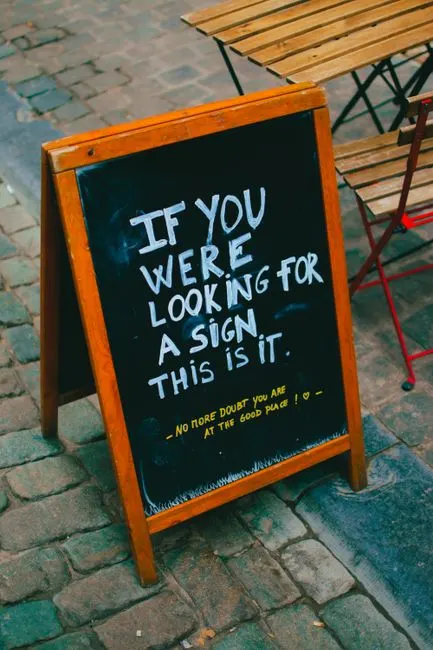 IF YOU
WERE
LOOKING FOR
A SIGN
THIS IS IT.
- NO MORE DOUBT YOU ARE
AT THE GOOD PLACE ! ♡ -